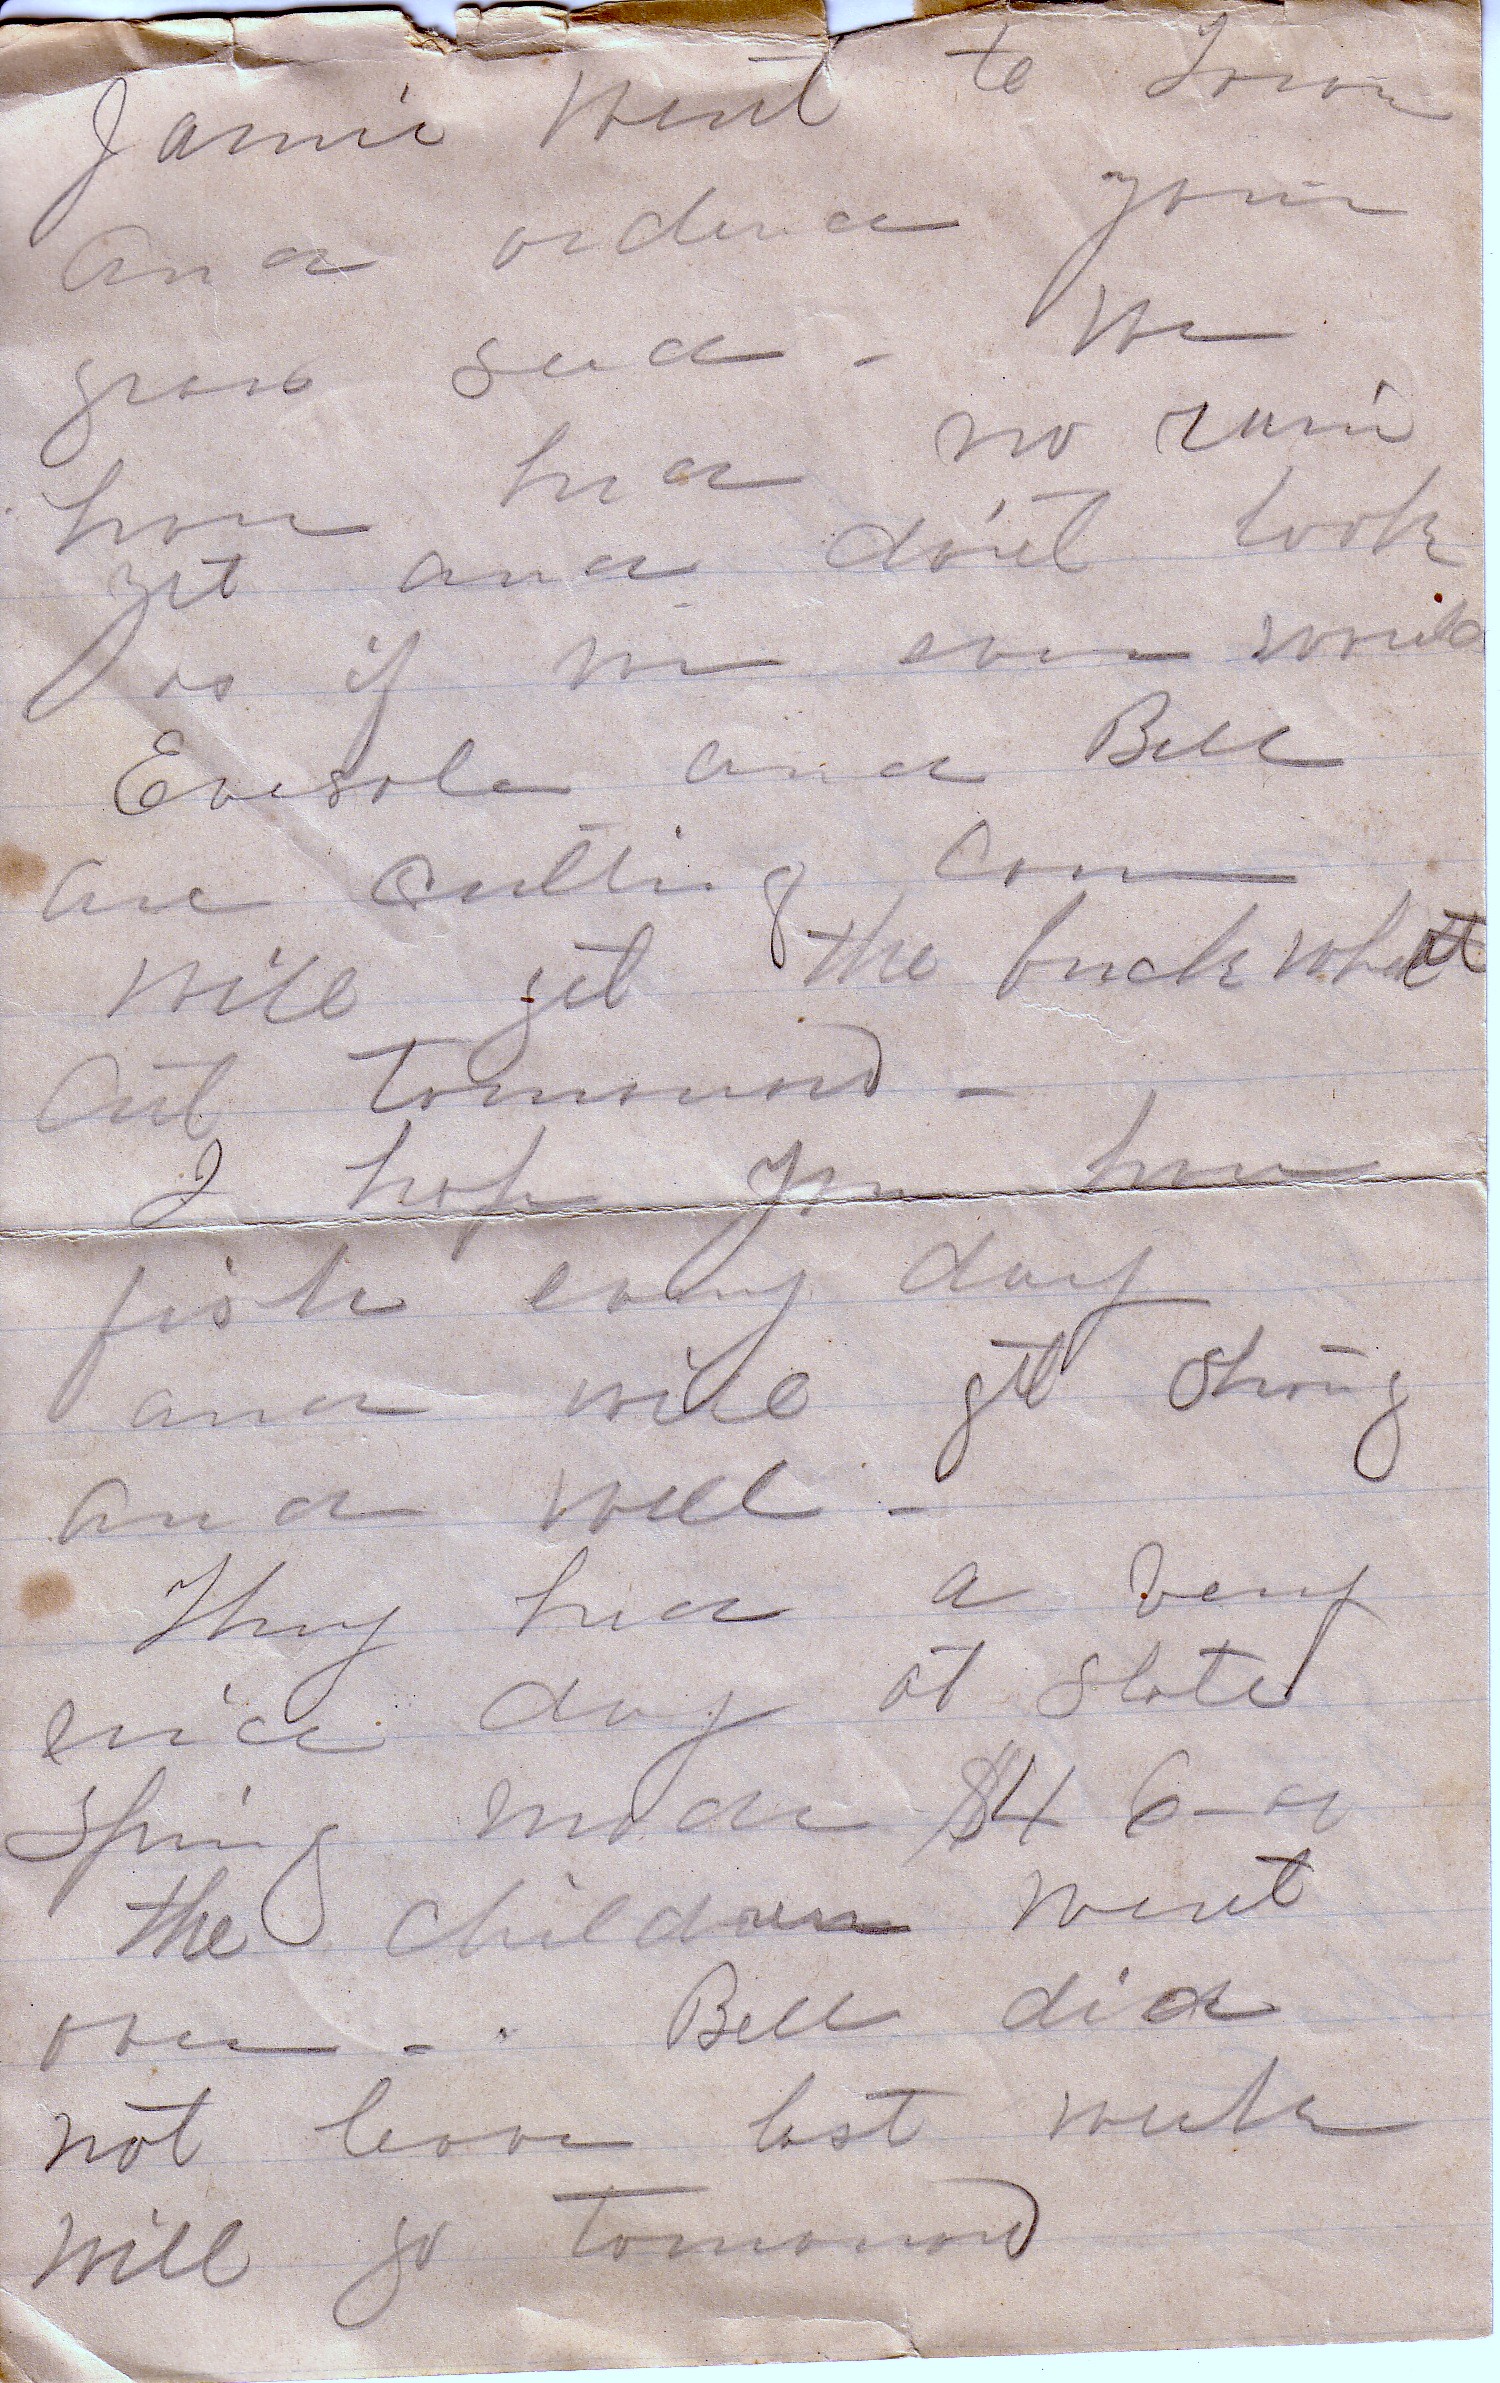 Jamie went to Town
and ordered your
grass seed - We
have had no rain
yet and don't look
as if we ever would
Eversole and Bell
are cutting corn
will get the buckwheat
cut tomorrow -
I hope you have
fish every day
and will get strong
and well -
They had a very
nice day at Slate
Spring made $46 -
the children went
over - Bell did
not leave last week
will go tomorrow